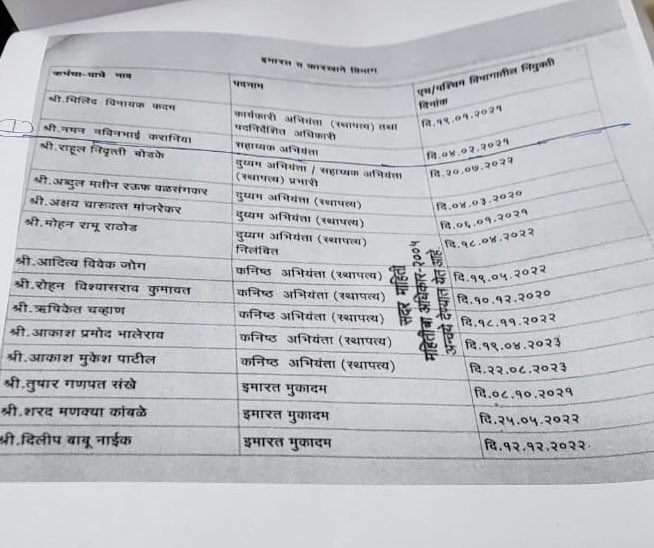 इमारत व कारखाने विभाग
कर्मचा-याचे नाव पदनाम एच/पश्चिम विभागातील नियुक्ती दिनांक
श्री.मिलिंद विनायक कदम कार्यकारी अभियंता (स्थापत्य) तथा पदनिर्देशित अधिकारी दि.१९.०१.२०२१
1 श्री.नमन नविनभाई करानिया सहाय्यक अभियंता दि.०४.०२.२०२१
श्री.राहूल निवृत्ती बोडके दुय्यम अभियंता / सहाय्यक अभियंता (स्थापत्य) प्रभारी दि.२०.०७.२०२२
श्री.अब्दुल मतीन रऊफ वळसंगकर दुय्यम अभियंता (स्थापत्य) दि.०४.०३.२०२०
श्री.अक्षय चारूदत्त मांजरेकर दुय्यम अभियंता (स्थापत्य) दि.०६.०१.२०२१
श्री.मोहन रामू राठोड दुय्यम अभियंता (स्थापत्य) निलंबित दि.१८.०४.२०२२
श्री.आदित्य विवेक जोग कनिष्ठ अभियंता (स्थापत्य) दि.१९.०५.२०२२
श्री.रोहन विश्वासराव कुमावत कनिष्ठ अभियंता (स्थापत्य) दि.१०.१२.२०२०
श्री.ऋषिकेत चव्हाण कनिष्ठ अभियंता (स्थापत्य) दि.१८.११.२०२२
श्री.आकाश प्रमोद भालेराव कनिष्ठ अभियंता (स्थापत्य) दि.१९.०४.२०२३
श्री.आकाश मुकेश पाटील कनिष्ठ अभियंता (स्थापत्य) दि.२२.०८.२०२३
श्री.तुषार गणपत संखे इमारत मुकादम दि.०८.१०.२०२१
श्री.शरद मणक्या कांबळे इमारत मुकादम दि.२५.०५.२०२२
श्री.दिलीप बाबू नाईक इमारत मुकादम दि.१२.१२.२०२२.
सदर माहिती
माहितीचा अधिकार-२००५
अन्वये देण्यात येत आहे.